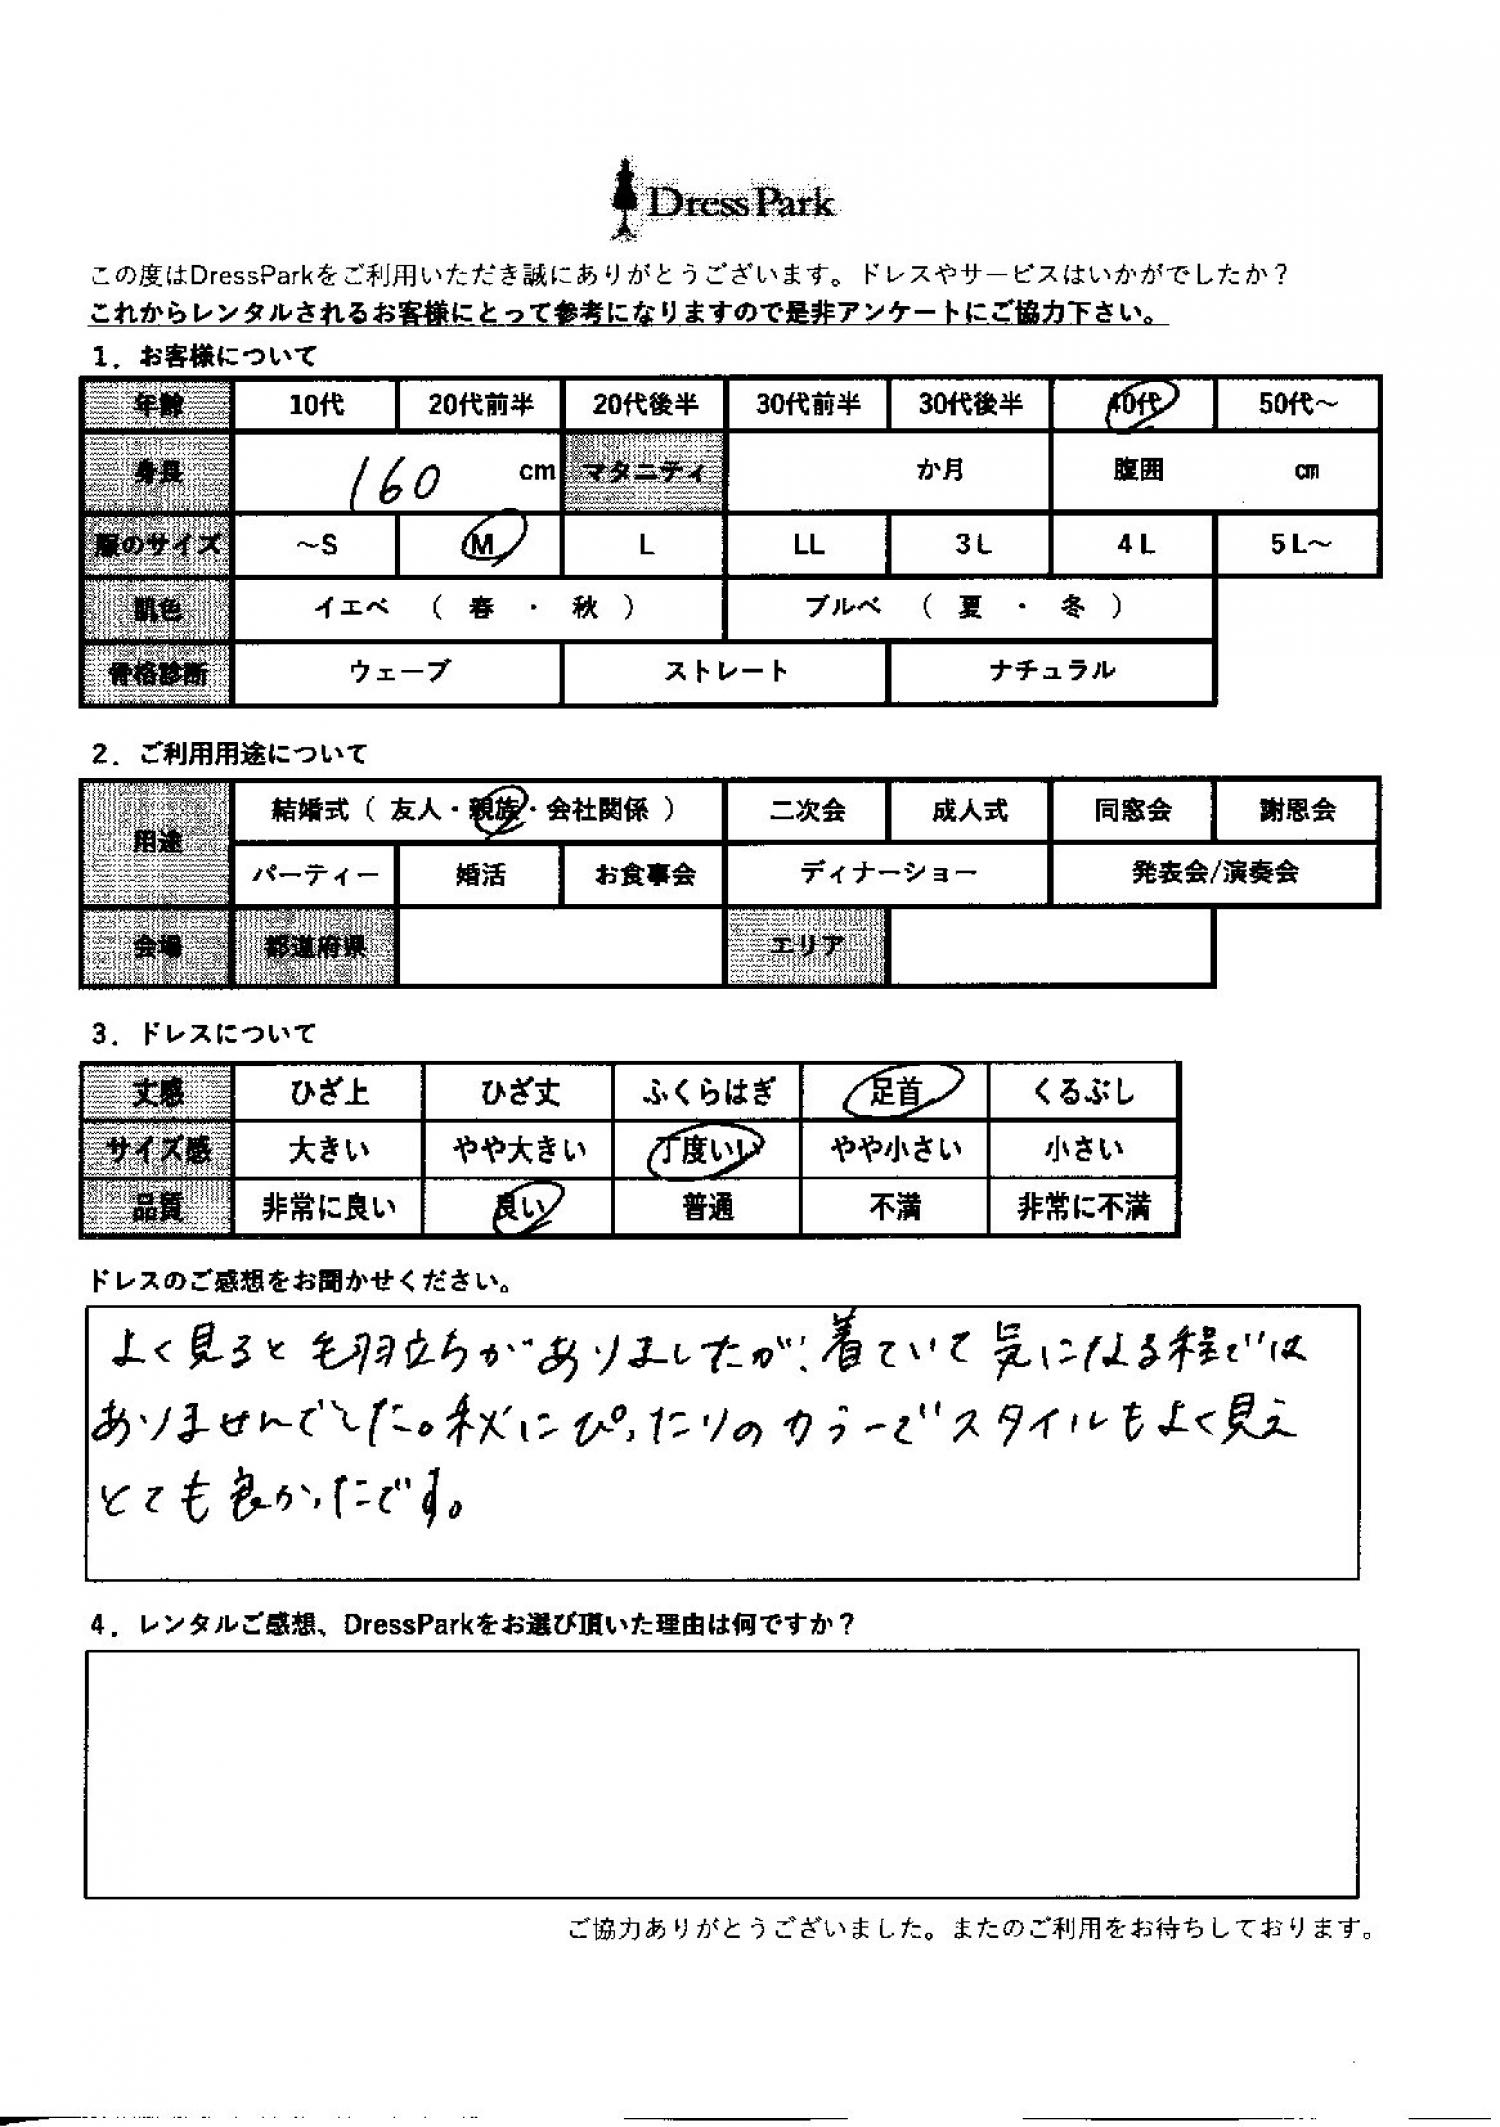 DressPark
この度はDressParkをご利用いただき誠にありがとうございます。ドレスやサービスはいかがでしたか？
これからレンタルされるお客様にとって参考になりますので是非アンケートにご協力下さい。
1．お客様について
年齢 10代 20代前半 20代後半 30代前半 30代後半 40代 50代～
身長 160 cm マタニティ か月 腹囲 ㎝
服のサイズ ～S M L LL 3L 4L 5L～
肌色 イエベ （ 春 ・ 秋 ） ブルベ （ 夏 ・ 冬 ）
骨格診断 ウェーブ ストレート ナチュラル
2．ご利用用途について
用途 結婚式（ 友人・親族・会社関係 ） 二次会 成人式 同窓会 謝恩会
パーティー 婚活 お食事会 ディナーショー 発表会/演奏会
会場 都道府県 エリア
3．ドレスについて
丈感 ひざ上 ひざ丈 ふくらはぎ 足首 くるぶし
サイズ感 大きい やや大きい 丁度いい やや小さい 小さい
品質 非常に良い 良い 普通 不満 非常に不満
ドレスのご感想をお聞かせください。
よく見ると毛羽立ちがありましたが、着ていて気になる程では
ありませんでした。秋にぴったりのカラーでスタイルもよく見え
とても良かったです。
4．レンタルご感想、DressParkをお選び頂いた理由は何ですか？
ご協力ありがとうございました。またのご利用をお待ちしております。